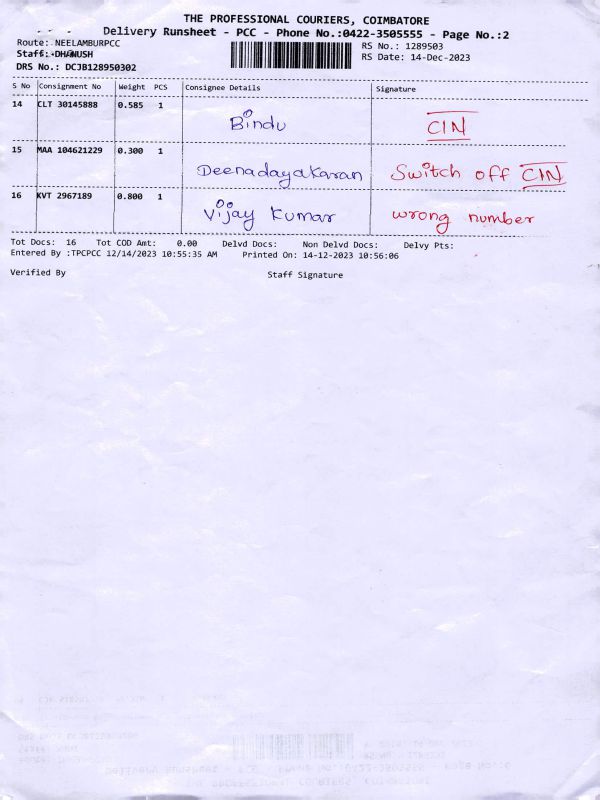 THE PROFESSIONAL COURIERS, COIMBATORE
Delivery Runsheet - PCC - Phone No.:0422-3505555 - Page No.:2
Route: NEELAMBURPCC
RS No.: 1289503
Staff: DHANUSH
RS Date: 14-Dec-2023
DRS No.: DCJB128950302
S No Consignment No Weight PCS Consignee Details Signature
14 CLT 30145888 0.585 1
Bindu CIN
15 MAA 104621229 0.300 1
Deenadayakaran Switch off CIN
16 KVT 2967189 0.800 1
Vijay Kumar wrong number
Tot Docs: 16 Tot COD Amt: 0.00 Delvd Docs: Non Delvd Docs: Delvy Pts:
Entered By :TPCPCC 12/14/2023 10:55:35 AM Printed On: 14-12-2023 10:56:06
Verified By Staff Signature